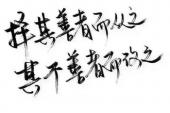 择其善者而从之
其不善者而改之